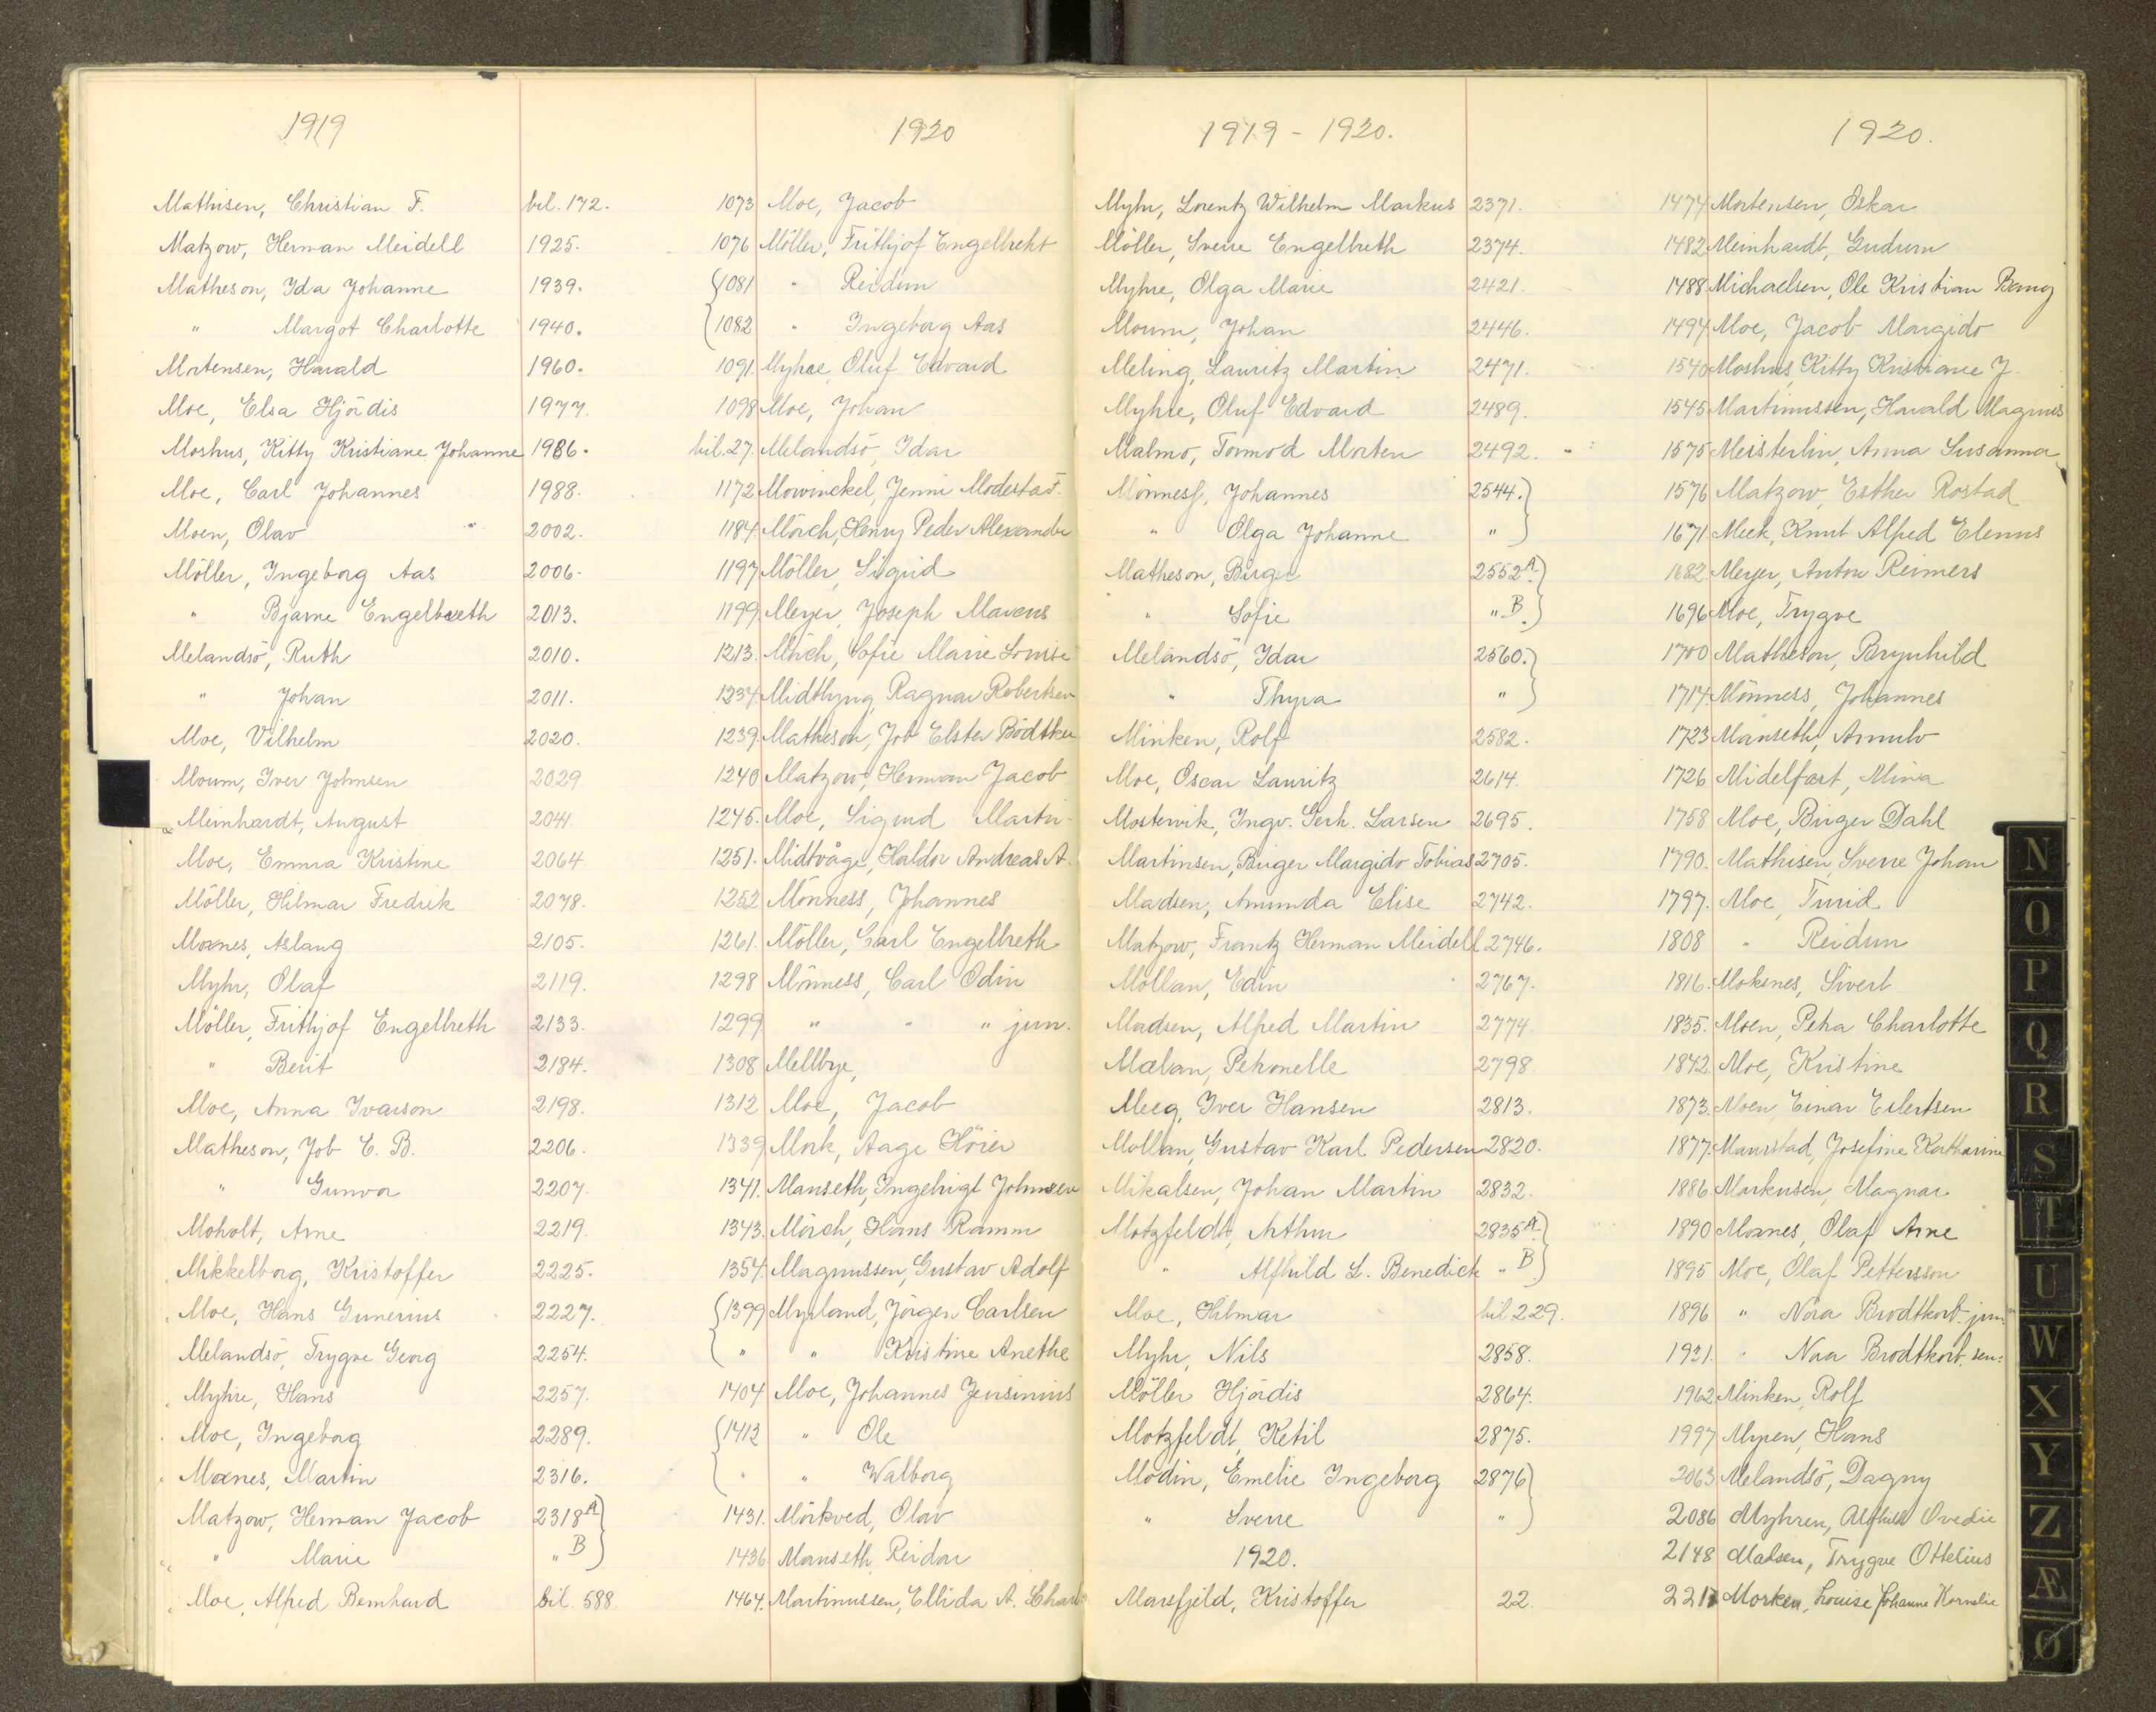 1919
Mathisen, Christian F. bil. 172.
Matzow, Herman Meidell 1925.
Matheson, Ida Johanne 1939.
" Margot Charlotte 1940.
Mortensen, Harald 1960.
Moe, Elsa Hjördis 1977.
Moshus, Kitty Kristiane Johanne 1986.
Moe, Carl Johannes 1988.
Moen, Olav " 2002.
Möller, Ingeborg Aas 2006.
" Bjarne Engelbreth 2013.
Melandsö, Ruth 2010.
" Johan 2011.
Moe, Vilhelm 2020.
Moum, Iver Johnsen 2029
Meinhardt, August 2041.
Moe, Emma Kristine 2064.
Möller, Hilmar Fredrik 2078.
Moxnes, Aslaug 2105.
Myhr, Olaf 2119.
Möller, Frithjof Engelbreth 2133.
" Berit 2184.
Moe, Anna Ivarson 2198.
Matheson, Job E. B. 2206.
" Gunvor 2207.
Moholt, Arne 2219.
Mikkelborg, Kristoffer 2225.
Moe, Hans Gunerius 2227.
Melandsö, Trygve Georg 2254.
Myhre, Hans 2257.
Moe, Ingeborg 2289.
Moxnes, Martin 2316.
Matzow, Herman Jacob 2318 A
" Marie " B
Moe, Alfred Bernhard bil. 588
1920
1073 Moe, Jacob
1076 Möller, Frithjof Engelbrekt
1081 " Reidun
1082 " Ingeborg Aas
1091. Myhre, Oluf Edvard
1098 Moe, Johan
bil. 27. Melandsö, Idar
1172 Mowinckel, Jenni Modesta F.
1184. Mörch, Henry Peder Alexander
1197 Möller, Sigrid
1199. Meyer, Joseph Marens
1213. Mörch, Sofie Marie Louise
1234 Midtlyng, Ragnar Robertsen
1239. Matheson, Job Elster Bödtker
1240 Matzow, Herman Jacob
1245. Moe, Sigurd Martin
1251. Midtvåge, Haldor Andreas A.
1252 Mönness, Johannes
1261. Möller, Carl Engelbreth
1298 Mönness, Carl Odin
1299 " " " jun.
1308 Mellbye,
1312 Moe, Jacob
1339 Mork, Aage Höier
1341. Manseth, Ingebrigt Johnsen
1343. Mörch, Hans Ramm
1354 Magnussen, Gustav Adolf
1399 Myrland, Jörgen Carlsen
" " Kristine Anethe
1404 Moe, Johannes Jensinius
1412 " Ole
" " Walborg
1431. Mörkved, Olav
1436 Manseth, Reidar
1464. Martinussen, Ellida A. Charl
1919 - 1920.
Myhr, Lorentz Wilhelm Markus 2371.
Möller, Sverre Engelbreth 2374.
Myhre, Olga Marie 2421.
Moum, Johan 2446.
Meling, Lauritz Martin 2471.
Myhre, Oluf Edvard 2489.
Malmo, Tormod Morten 2492.
Mönness, Johannes 2544.
" Olga Johanne "
Matheson, Birger 2552 A.
" Sofie " B.
Melandsö, Idar 2560.
" Thyra "
Minken, Rolf 2582.
Moe, Oscar Lauritz 2614.
Mostervik, Ingv. Gerh. Larsen 2695.
Martinsen, Birger Margido Tobias 2705.
Madsen, Amunda Elise 2742.
Matzow, Frantz Herman Meidell 2746.
Mollan, Edin 2767.
Madsen, Alfred Martin 2774.
Mælan, Petronelle 2798.
Meeg, Iver Hansen 2813.
Mollan, Gustav Karl Pedersen 2820.
Mikalsen, Johan Martin 2832.
Motzfeldt, Arthur 2835 A
" Alfhild L. Benedick " B
Moe, Hilmar bil 229.
Myhr, Nils 2858.
Möller Hjördis 2864.
Motzfeldt, Ketil 2875.
Modin, Emelie Ingeborg 2876
" Sverre "
1920.
Marsfjeld, Kristoffer 22.
1920.
1474 Mortensen, Oskar
1482 Meinhardt, Gudrun
1488 Michaelsen, Ole Kristian Bang
1494 Moe, Jacob Margido
1540 Moshus, Kitty Kristiane J.
1545 Martinussen, Harald Magnus
1575 Meisterlin, Anna Susanna
1576 Matzow, Esther Rostad
1671 Meek, Knut Alfred Elenus
1682 Meyer, Anton Reimers
1696 Moe, Trygve
1700 Matheson, Brynhild
1714 Mönness, Johannes
1723 Manseth, Arnulv
1726 Midelfart, Mina
1758 Moe, Birger Dahl
1790. Mathisen, Sverre Johan
1797. Moe, Turid
1808 " Reidun
1816. Moksnes, Sivert
1835. Moen, Petra Charlotte
1842. Moe, Kristine
1873. Moen, Einar Eilertsen
1877. Maurstad, Josefine Katharine
1886. Markusen, Magnar
1890 Moxnes, Olaf Arne
1895 Moe, Olaf Pettersson
1896 " Nora Brodtkorb jun.
1931. " Naa Brodtkorb sen.
1962 Minken, Rolf
1997 Myren, Hans
2063 Melandsö, Dagny
2086 Myhren, Alfhild Ovedie
2148 Madsen, Trygve Ottelius
2217 Morken, Louise Johanne Kornelie
N
O
P
Q
R
S
T
U
W
X
Y
Z
Æ
Ø